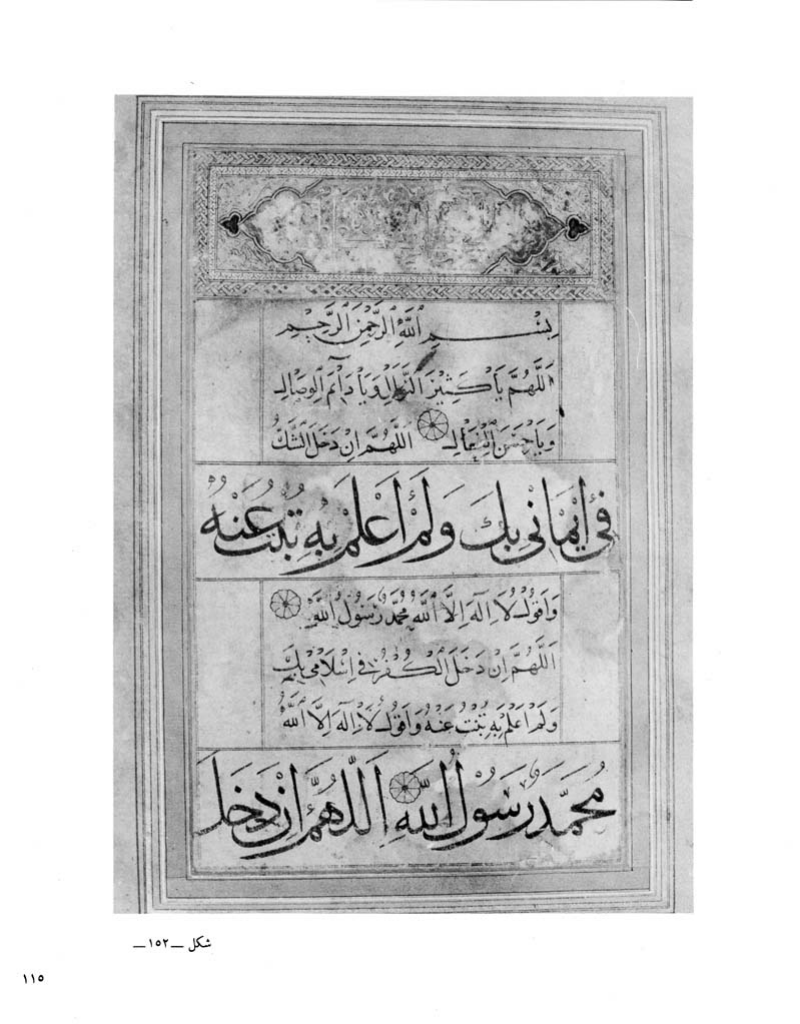 بِسْمِ اللَّهِ الرَّحْمٰنِ الرَّحِيمِ
اَللَّهُمَّ يَا كَثِيرَ النَّوَالِ وَيَا دَآئِمَ الْوِصَالِ
وَيَا حَسَنَ الْفِعَالِ اَللَّهُمَّ اِنْ دَخَلَ الشَّكُّ
فِى اِيْمَانِى بِكَ وَلَمْ اَعْلَمْ بِهِ تُبْتُ عَنْهُ
وَاَقُولُ لَا اِلٰهَ اِلَّا اللَّهُ مُحَمَّدٌ رَسُولُ اللَّهِ
اَللَّهُمَّ اِنْ دَخَلَ الْكُفْرُ فِى اِسْلَامِى بِكَ
وَلَمْ اَعْلَمْ بِهِ تُبْتُ عَنْهُ وَاَقُولُ لَا اِلٰهَ اِلَّا اللَّهُ
مُحَمَّدٌ رَسُولُ اللَّهِ اَللَّهُمَّ اِنْ دَخَلَ
شكل ــ ١٥٢ ــ
١١٥